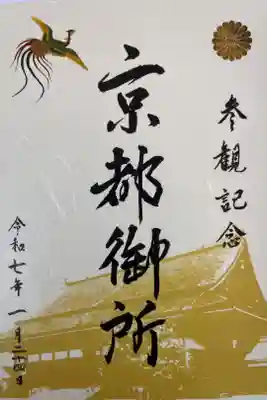 参観記念
京都御所
令和七年一月二十四日